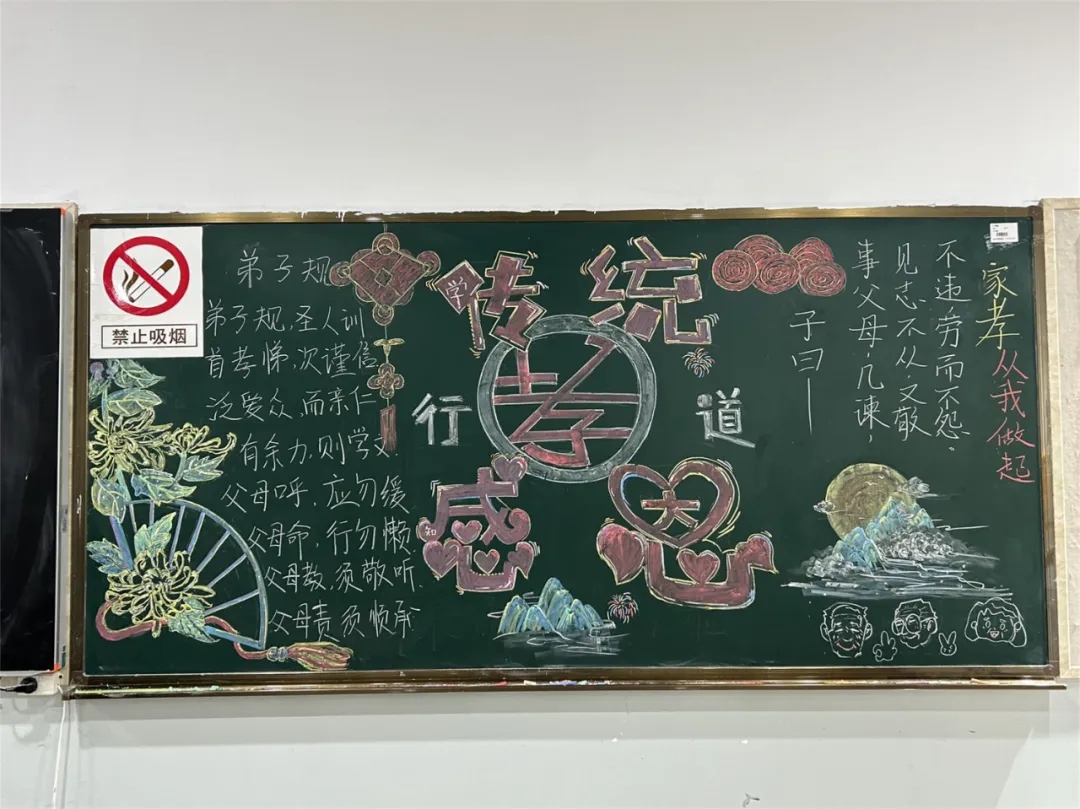 禁止吸烟
弟子规
弟子规,圣人训
首孝悌,次谨信
泛爱众,而亲仁
有余力,则学文
父母呼,应勿缓
父母命,行勿懒.
父母教,须敬听.
父母责须顺承
学传统
行孝道
知感恩
子曰——
事父母,几谏,
见志不从又敬
不违劳而不怨。
家孝从我做起